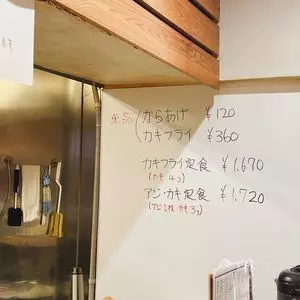 単品
からあげ ¥120
カキフライ ¥360
カキフライ定食 ¥1,670
(カキ 4コ)
アジ・カキ定食 ¥1,720
(アジ1枚・カキ3コ)